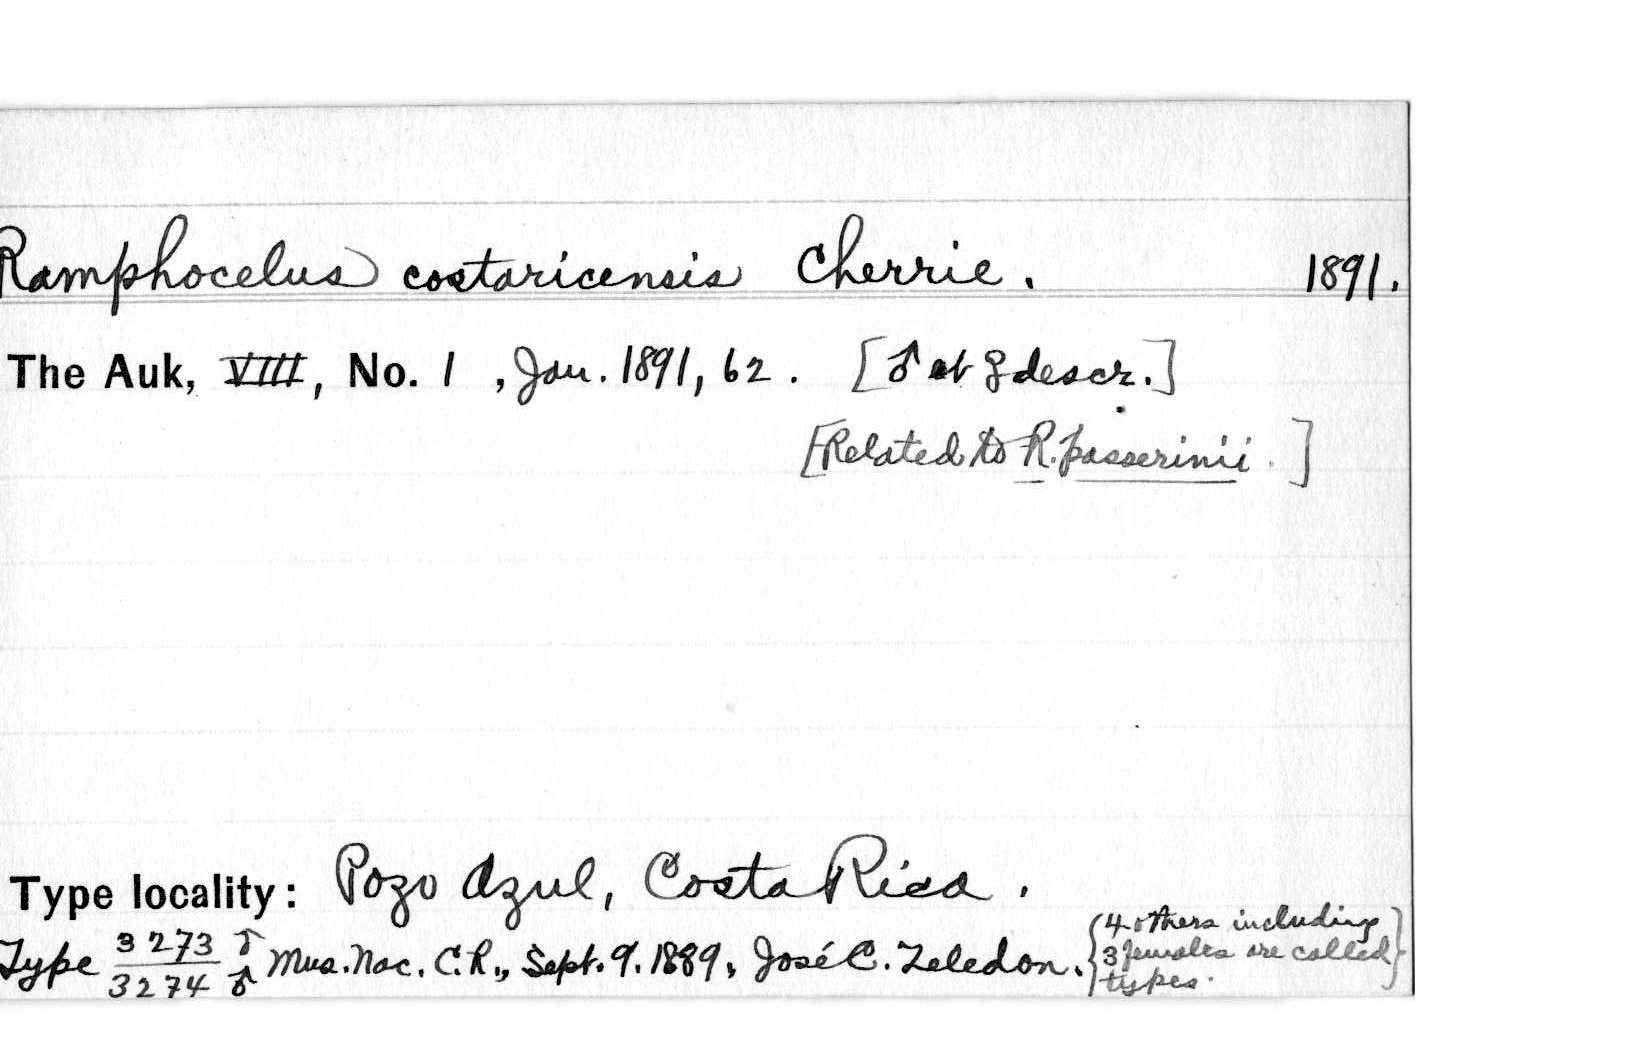 Ramphocelus costaricensis Cherrie. 1891.
The Auk, VIII, No. 1, Jan. 1891, 62. [♂ et ♀ descr.]
[Related to R. passerinii.]
Type locality: Pozo Azul, Costa Rica.
Type 3273 ♂ / 3274 ♂ Mus. Nac. C.R., Sept. 9. 1889, José C. Zeledon. {4 others including
3 females are called
types.}